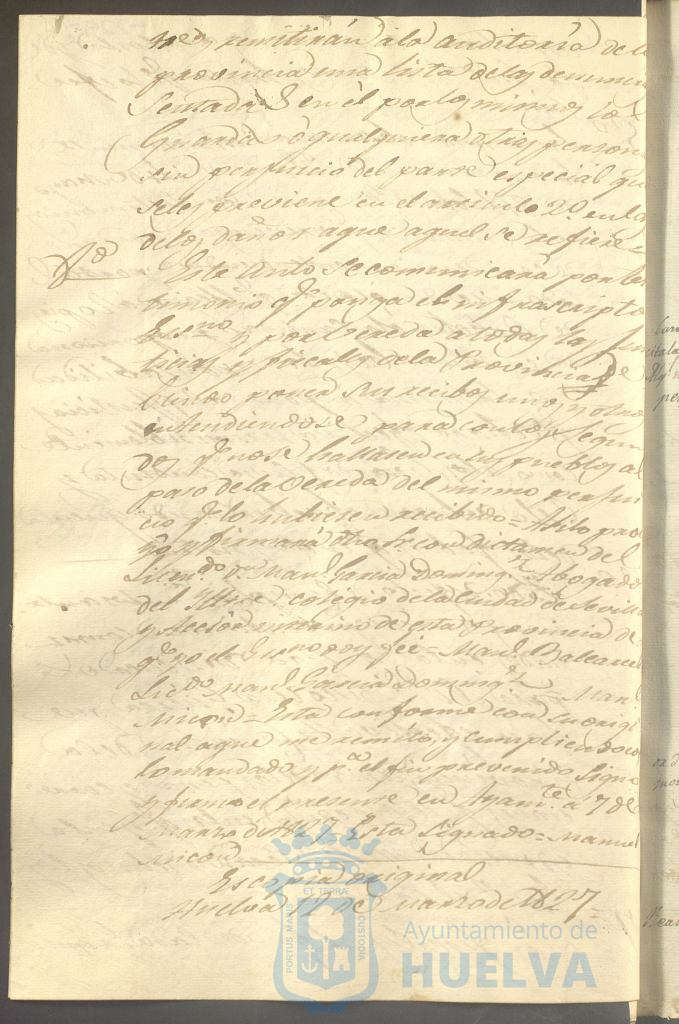 remitirán a la Auditoría de la
provincia una lista de las denuncias
sentadas en él por los mismos
Guardas o qualquiera otras person
sin perjuicio del parte especial qu
se les previene en el articulo 20 en la
de los daños a que aquel se refiere =
Este Auto se comunicará por tes
timonio q.e ponga el infrascripto
Ess.no y por Vereda a todas las Jus
ticias y fiscales de la Provincia
unos y otro
entendiendose para con los segun
dos q.e no se hallasen en sus pueblos al
paso de la Vereda del mismo
q.e lo hubiesen recibido = Asi lo pro
yó y firmará dho Sr. con dictamen del
Licen.do D.n Man.l Garcia Doming.z Abogado
del Ittre. colegio de la Ciudad de Sevilla
y Asesor interino de esta Provincia de
q.e yo el Ess.no doy feé = Man.l
Lic.do Man.l Garcia Doming.z = Man.l
Micon = Está conforme con su origi
nal a que me remito, y cumpliendo co
lo mandado y p.a el fin prevenido Signo
y firmo el presente en Ayam.te a 7 de
Marzo de 1827 Está Signado = Manuel
Micon
Es copia original
Huelva 12 de Marzo de 1827
PORTUS MARIS
ET TERRÆ
CUSTODIA
Ayuntamiento de
HUELVA